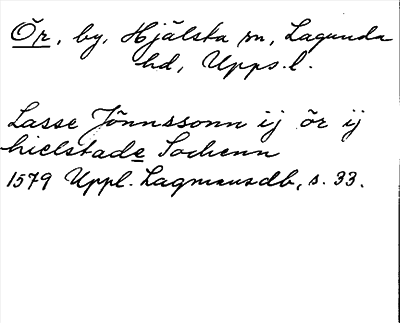 Ör, by, Hjälsta sn, Lagunda
hd, Upps.l.
Lasse Jönnssonn ij ör ij
hielstade Sochenn
1579 Uppl. Lagmansdb, s. 33.